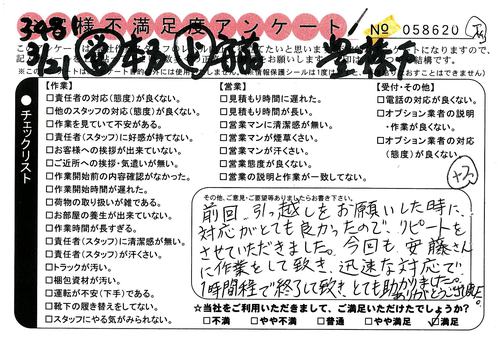 お客様不満足度アンケート
№ 058620
3/21
豊橋市
チェックリスト
【作業】
□責任者の対応(態度)が良くない。
□他のスタッフの対応(態度)が良くない。
□作業を見ていて不安がある。
□責任者(スタッフ)に好感が持てない。
□お客様への挨拶が出来ていない。
□ご近所への挨拶・気遣いが無い。
□作業開始前の内容確認がなかった。
□作業開始時間が遅れた。
□荷物の取り扱いが雑である。
□お部屋の養生が出来ていない。
□作業時間が長すぎる。
□責任者(スタッフ)に清潔感が無い。
□責任者(スタッフ)が汗くさい。
□トラックが汚い。
□梱包資材が汚い。
□運転が不安(下手)である。
□靴下の履き替えをしてない。
□スタッフにやる気がみられない。
【営業】
□見積もり時間に遅れた。
□見積もり時間が長い。
□営業マンに清潔感が無い。
□営業マンが煙草くさい。
□営業マンが汗くさい。
□営業態度が良くない。
□営業の説明と作業が一致してない。
【受付・その他】
□電話の対応が良くない。
□オプション業者の説明
・作業が良くない。
□オプション業者の対応
(態度)が良くない。
その他、ご意見・ご要望等ありましたらお書き下さい。
前回、引っ越しをお願いした時に、
対応がとても良かったので、リピートを
させていただきました。今回も安藤さん
に作業をして頂き、迅速な対応で
1時間程で終了して頂き、とても助かりました。
ありがとうございました。
☆当社をご利用いただきまして、ご満足いただけたでしょうか?
□不満 □やや不満 □普通 □やや満足 ☑満足